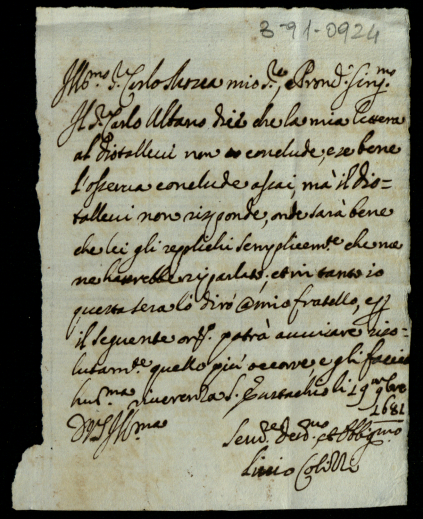 3-91-0924
Ill.mo S.r Carlo mio S.re e Pron.
Il S.r Carlo Albano dice che la mia lettera
al Diotallevi non conclude, e se bene
l'osserva conclude assai, mà il Dio=
tallevi non risponde, onde sarà bene
che lei gli replichi semplicem.te che
ne riparlato, et in tanto io
questa sera lo dirò a mio fratello, e p
il seguente ord.o potrà avvisare riso=
lutam.te quello più occorre, e gli faccio
hum.ma riverenza S. Eustachio li 19 9bre
1681
D V.S. Ill.ma
Ser.re et Obbligmo
Livio